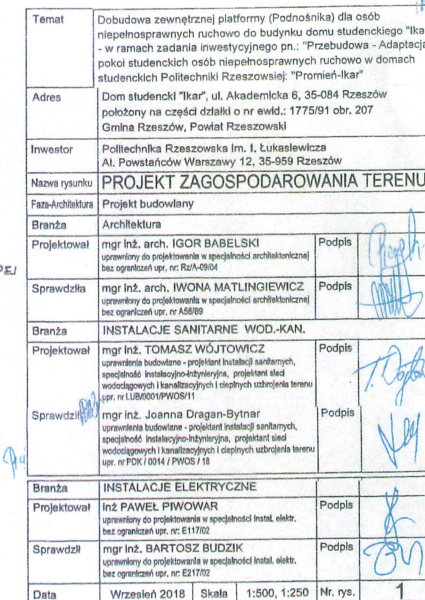 Temat Dobudowa zewnętrznej platformy (Podnośnika) dla osób
niepełnosprawnych ruchowo do budynku domu studenckiego "Ika
- w ramach zadania inwestycyjnego pn.: "Przebudowa - Adaptacja
pokoi studenckich osób niepełnosprawnych ruchowo w domach
studenckich Politechniki Rzeszowsiej: "Promień-Ikar"
Adres Dom studencki "Ikar", ul. Akademicka 6, 35-084 Rzeszów
położony na części działki o nr ewid.: 1775/91 obr. 207
Gmina Rzeszów, Powiat Rzeszowski
Inwestor Politechnika Rzeszowska im. I. Łukasiewicza
Al. Powstańców Warszawy 12, 35-959 Rzeszów
Nazwa rysunku PROJEKT ZAGOSPODAROWANIA TERENU
Faza-Architektura Projekt budowlany
Branża Architektura
Projektował mgr inż. arch. IGOR BABELSKI Podpis
uprawniony do projektowania w specjalności architektonicznej
bez ograniczeń upr. nr: Rz/A-09/04
Sprawdziła mgr inż. arch. IWONA MATLINGIEWICZ Podpis
uprawniony do projektowania w specjalności architektonicznej
bez ograniczeń upr. nr A58/89
Branża INSTALACJE SANITARNE WOD.-KAN.
Projektował mgr inż. TOMASZ WÓJTOWICZ Podpis
uprawnienia budowlane - projektant instalacji sanitarnych,
specjalność instalacyjno-inżynieryjna, projektant sieci
wodociągowych i kanalizacyjnych i cieplnych uzbrojenia terenu
upr. nr LUB/0001/PWOS/11
Sprawdził mgr inż. Joanna Dragan-Bytnar Podpis
uprawnienia budowlane - projektant instalacji sanitarnych,
specjalność instalacyjno-inżynieryjna, projektant sieci
wodociągowych i kanalizacyjnych i cieplnych uzbrojenia terenu
upr. nr PDK / 0014 / PWOS / 18
Branża INSTALACJE ELEKTRYCZNE
Projektował inż PAWEŁ PIWOWAR Podpis
uprawniony do projektowania w specjalności instal. elektr.
bez ograniczeń upr. nr: E117/02
Sprawdził mgr inż. BARTOSZ BUDZIK Podpis
uprawniony do projektowania w specjalności instal. elektr.
bez ograniczeń upr. nr: E217/02
Data Wrzesień 2018 Skala 1:500, 1:250 Nr. rys. 1